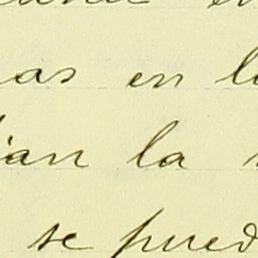 as en l
ian la
se pued